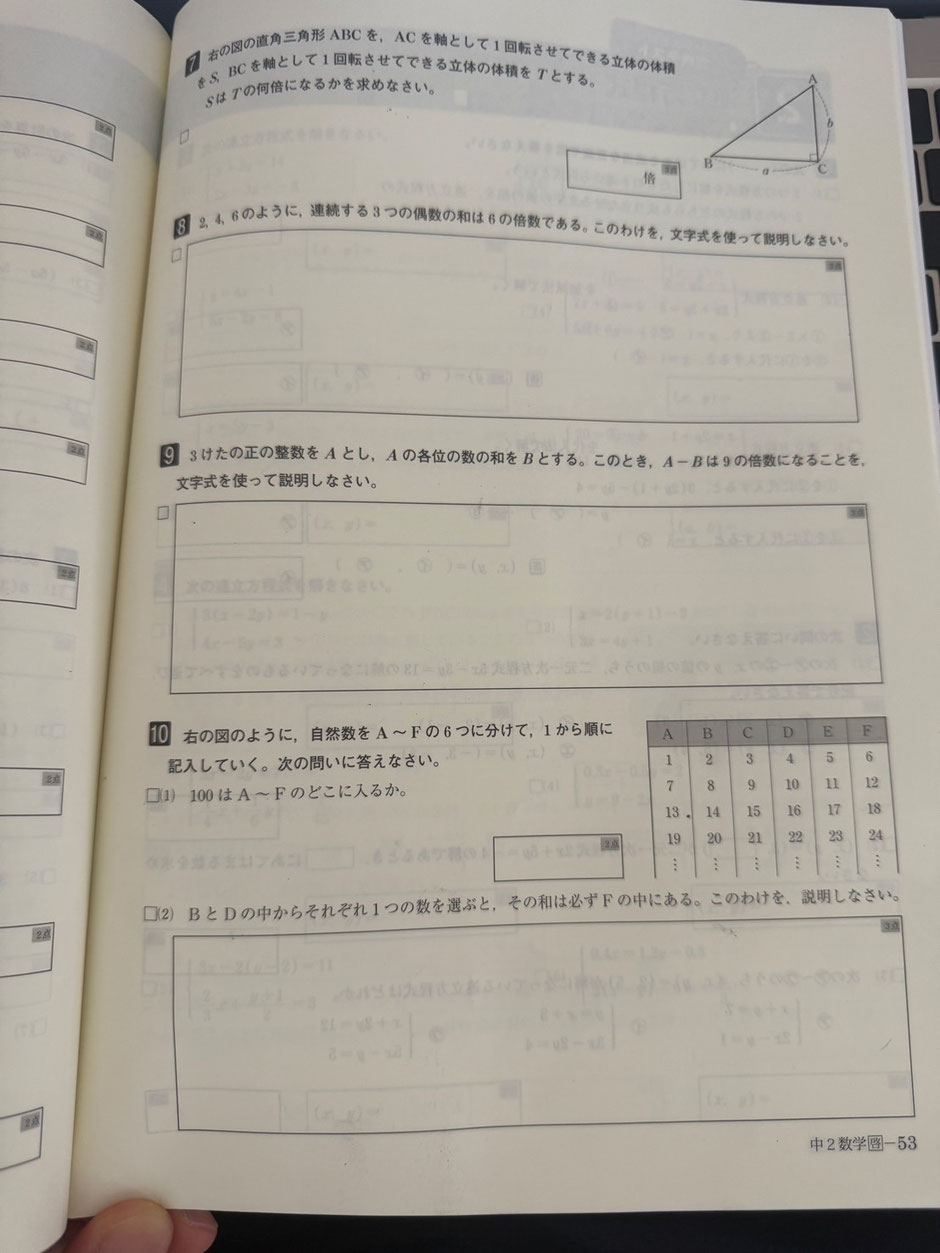 2点
2点
2点
2点
2点
2点
2点
2点
7 右の図の直角三角形 ABC を，AC を軸として1回転させてできる立体の体積
を S，BC を軸として1回転させてできる立体の体積を T とする。
S は T の何倍になるかを求めなさい。
A
b
B
a
C
倍
3点
8 2, 4, 6のように，連続する3つの偶数の和は6の倍数である。このわけを，文字式を使って説明しなさい。
3点
9 3けたの正の整数を A とし，A の各位の数の和を B とする。このとき，A－B は9の倍数になることを，
文字式を使って説明しなさい。
3点
10 右の図のように，自然数を A～F の6つに分けて，1から順に
記入していく。次の問いに答えなさい。
□(1) 100は A～F のどこに入るか。
3点
A B C D E F
1 2 3 4 5 6
7 8 9 10 11 12
13 14 15 16 17 18
19 20 21 22 23 24
⋮ ⋮ ⋮ ⋮ ⋮ ⋮
□(2) B と D の中からそれぞれ1つの数を選ぶと，その和は必ず F の中にある。このわけを，説明しなさい。
3点
中2数学啓－53